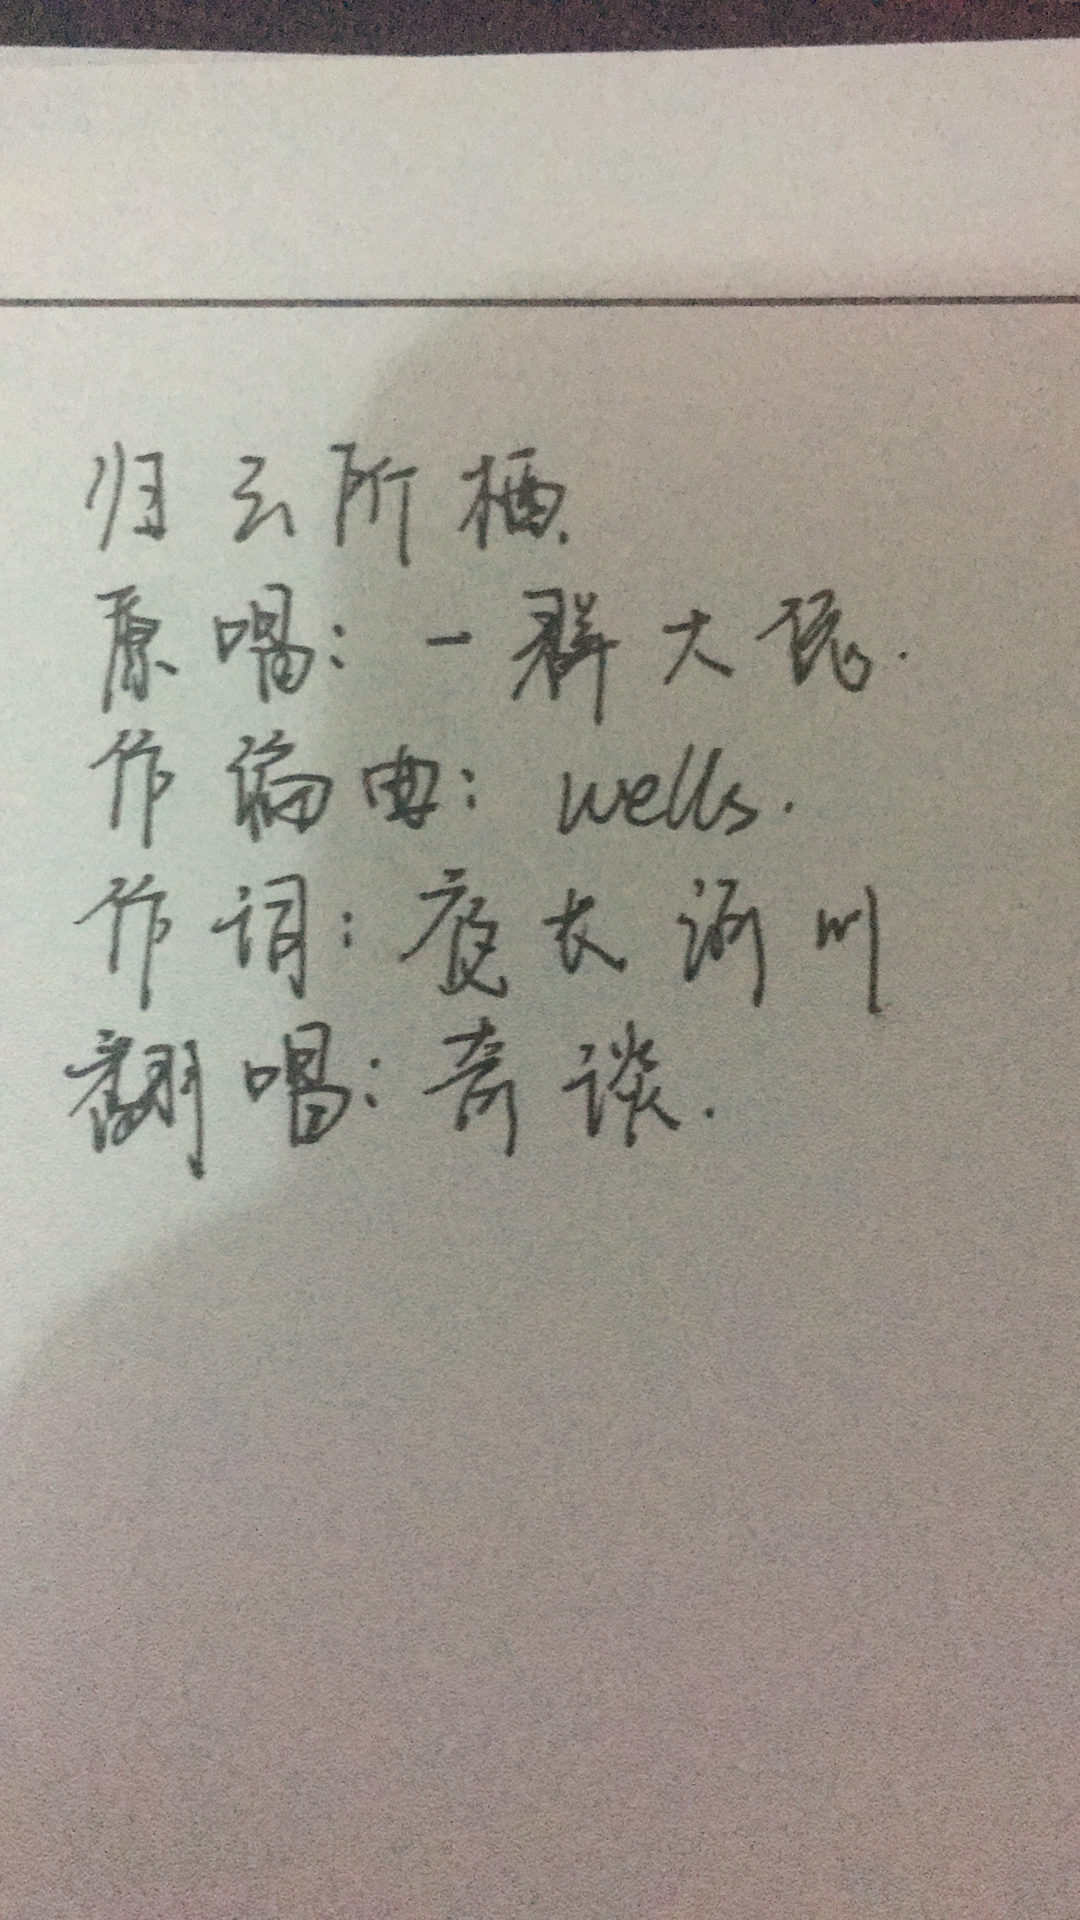 归云所栖
原唱:一群大琥.
作编曲: wells.
作词:夜长浙川
翻唱:奇谈.